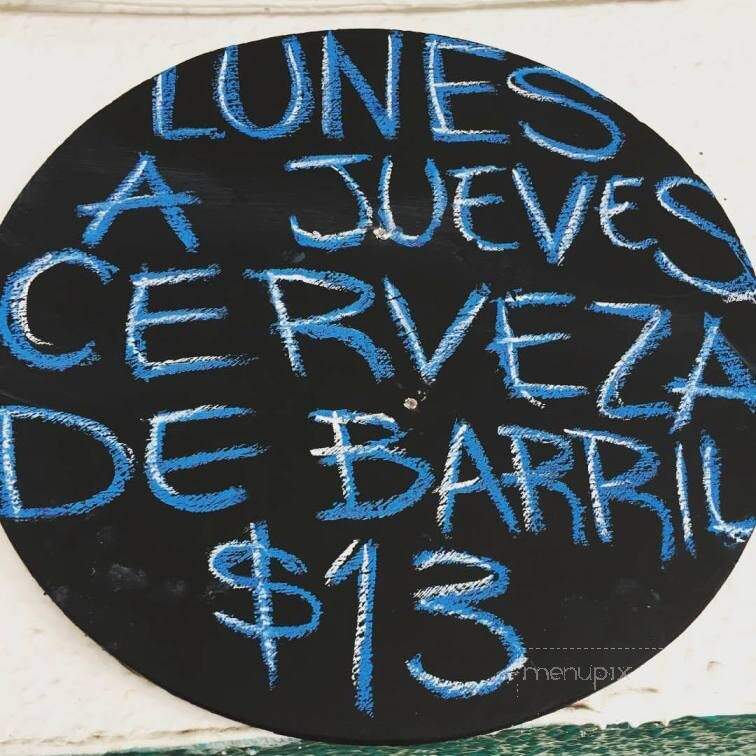 LUNES
A JUEVES
CERVEZA
DE BARRIL
$13
menupix